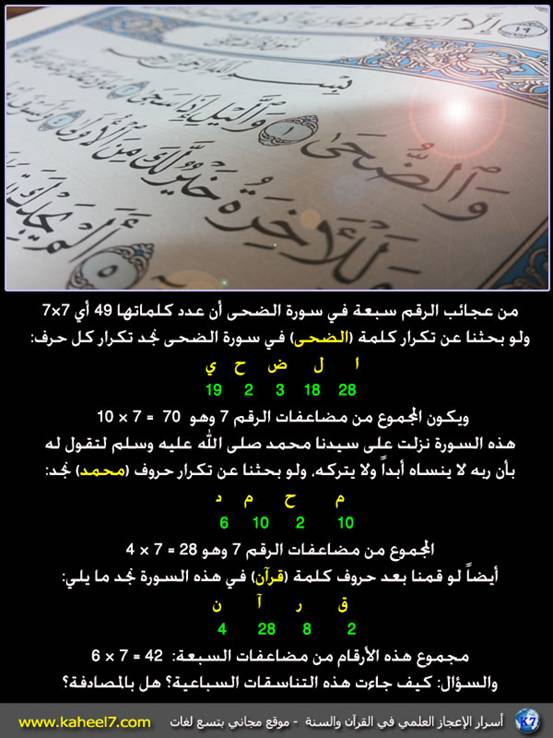 وَٱلضُّحَىٰ ١ وَٱلَّيْلِ إِذَا سَجَىٰ
وَلَلْآخِرَةُ خَيْرٌ لَّكَ مِنَ ٱلْأُولَىٰ
أَلَمْ يَجِدْكَ
٥
من عجائب الرقم سبعة في سورة الضحى أن عدد كلماتها 49 أي 7×7
ولو بحثنا عن تكرار كلمة (الضحى) في سورة الضحى نجد تكرار كل حرف:
ا ل ض ح ي
28 18 3 2 19
ويكون المجموع من مضاعفات الرقم 7 وهو 70 = 7 × 10
هذه السورة نزلت على سيدنا محمد صلى الله عليه وسلم لتقول له
بأن ربه لا ينساه أبداً ولا يتركه، ولو بحثنا عن تكرار حروف (محمد) نجد:
م ح م د
10 2 10 6
المجموع من مضاعفات الرقم 7 وهو 28 = 7 × 4
أيضاً لو قمنا بعد حروف كلمة (قرآن) في هذه السورة نجد ما يلي:
ق ر آ ن
2 8 28 4
مجموع هذه الأرقام من مضاعفات السبعة: 42 = 7 × 6
والسؤال: كيف جاءت هذه التناسقات السباعية؟ هل بالمصادفة؟
K7 أسرار الإعجاز العلمي في القرآن والسنة - موقع مجاني بتسع لغات www.kaheel7.com